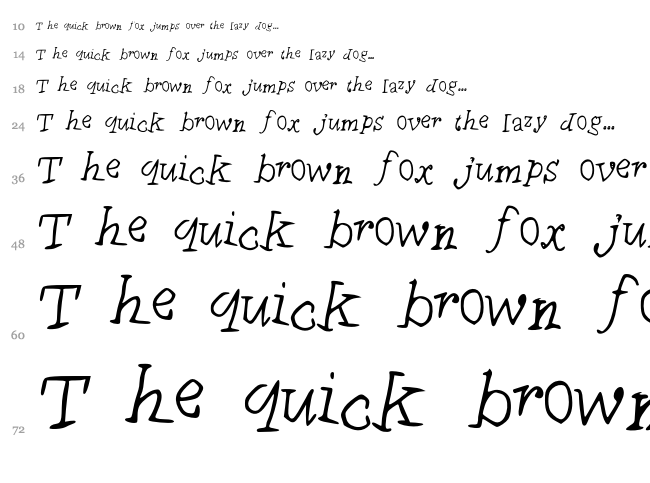 10 T he quick brown fox jumps over the lazy dog...
14 T he quick brown fox jumps over the lazy dog...
18 T he quick brown fox jumps over the lazy dog...
24 T he quick brown fox jumps over the lazy dog...
36 T he quick brown fox jumps over
48 T he quick brown fox ju
60 T he quick brown fo
72 T he quick brown